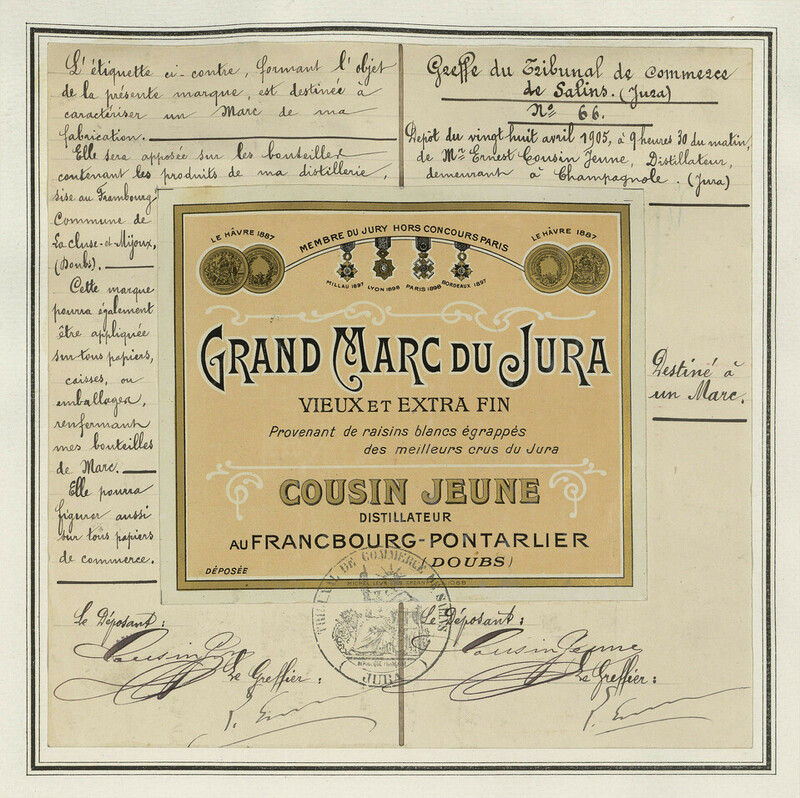 L'étiquette ci-contre, formant l'objet
de la présente marque, est destinée à
caractériser un Marc de ma
fabrication.
Elle sera apposée sur les bouteilles
contenant les produits de ma distillerie,
sise au Frambourg
Commune de
La cluse-et-Mijoux,
(Doubs).
Cette marque
pourra également
être appliquée
sur tous papiers,
caisses, ou
emballages,
renfermant
mes bouteilles
de Marc.
Elle pourra
figurer aussi
sur tous papiers
de commerce.
Greffe du Tribunal de Commerce
de Salins. (Jura)
No 66.
Dépôt du vingt huit avril 1905, à 9 heures 30 du matin,
de Mr Ernest Cousin Jeune, Distillateur,
demeurant à Champagnole. (Jura)
Destiné à
un Marc.
LE HÂVRE 1887
MEMBRE DU JURY HORS CONCOURS PARIS
LE HÂVRE 1887
MILLAU 1897 LYON 1898 PARIS 1898 BORDEAUX 1897
GRAND MARC DU JURA
VIEUX ET EXTRA FIN
Provenant de raisins blancs égrappés
des meilleurs crus du Jura
COUSIN JEUNE
DISTILLATEUR
AU FRANCBOURG-PONTARLIER
(DOUBS)
DÉPOSÉE
TRIBUNAL DE COMMERCE DE SALINS
(JURA)
Le Déposant:
Cousin Jeune
Le Greffier:
Le Déposant:
Cousin Jeune
Le Greffier: